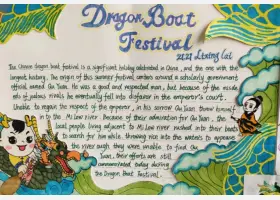 Dragon Boat
Festival
2121 Liming Cai
The Chinese dragon boat festival is a significant holiday celebrated in China, and the one with the
longest history. The origin of this summer festival centers around a scholarly government
official named Qu Yuan. He was a good and respected man, but because of the misde
eds of jealous rivals he eventually fell into disfavor in the emperor's court.
Unable to regain the respect of the emperor, in his sorrow Qu Yuan threw himself
in to the Mi Low river. Because of their admiration for Qu Yuan, the
local people living adjacent to Mi Low river rushed into their boats
to search for him while throwing rice into the waters to appease
the river. Although they were unable to find Qu
Yuan, their efforts are still
commemorated today during
the Dragon Boat Festival.